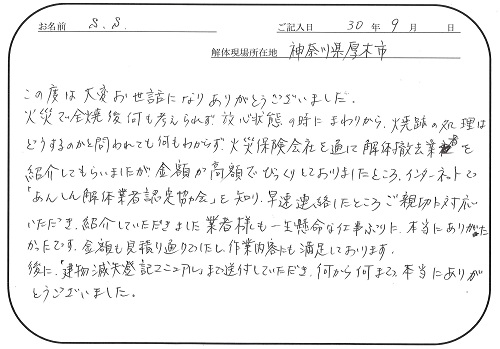 お名前 S.S. ご記入日 30年9月 日
解体現場所在地 神奈川県厚木市
この度は大変お世話になりありがとうございました。
火災で全焼後何も考えられず放心状態の時にまわりから、焼跡の処理は
どうするのかと問われても何もわからず、火災保険会社を通じて解体撤去業者を
紹介してもらいましたが金額が高額でびっくりしておりましたところ、インターネットで
「あんしん解体業者認定協会」を知り、早速連絡したところご親切に対応
いただき、紹介していただきました業者様も一生懸命な仕事ぶりに、本当にありがた
かったです。金額も見積り通りでしたし、作業内容にも満足しております。
後に、「建物滅失登記マニュアル」まで送付していただき、何から何まで本当にありが
とうございました。